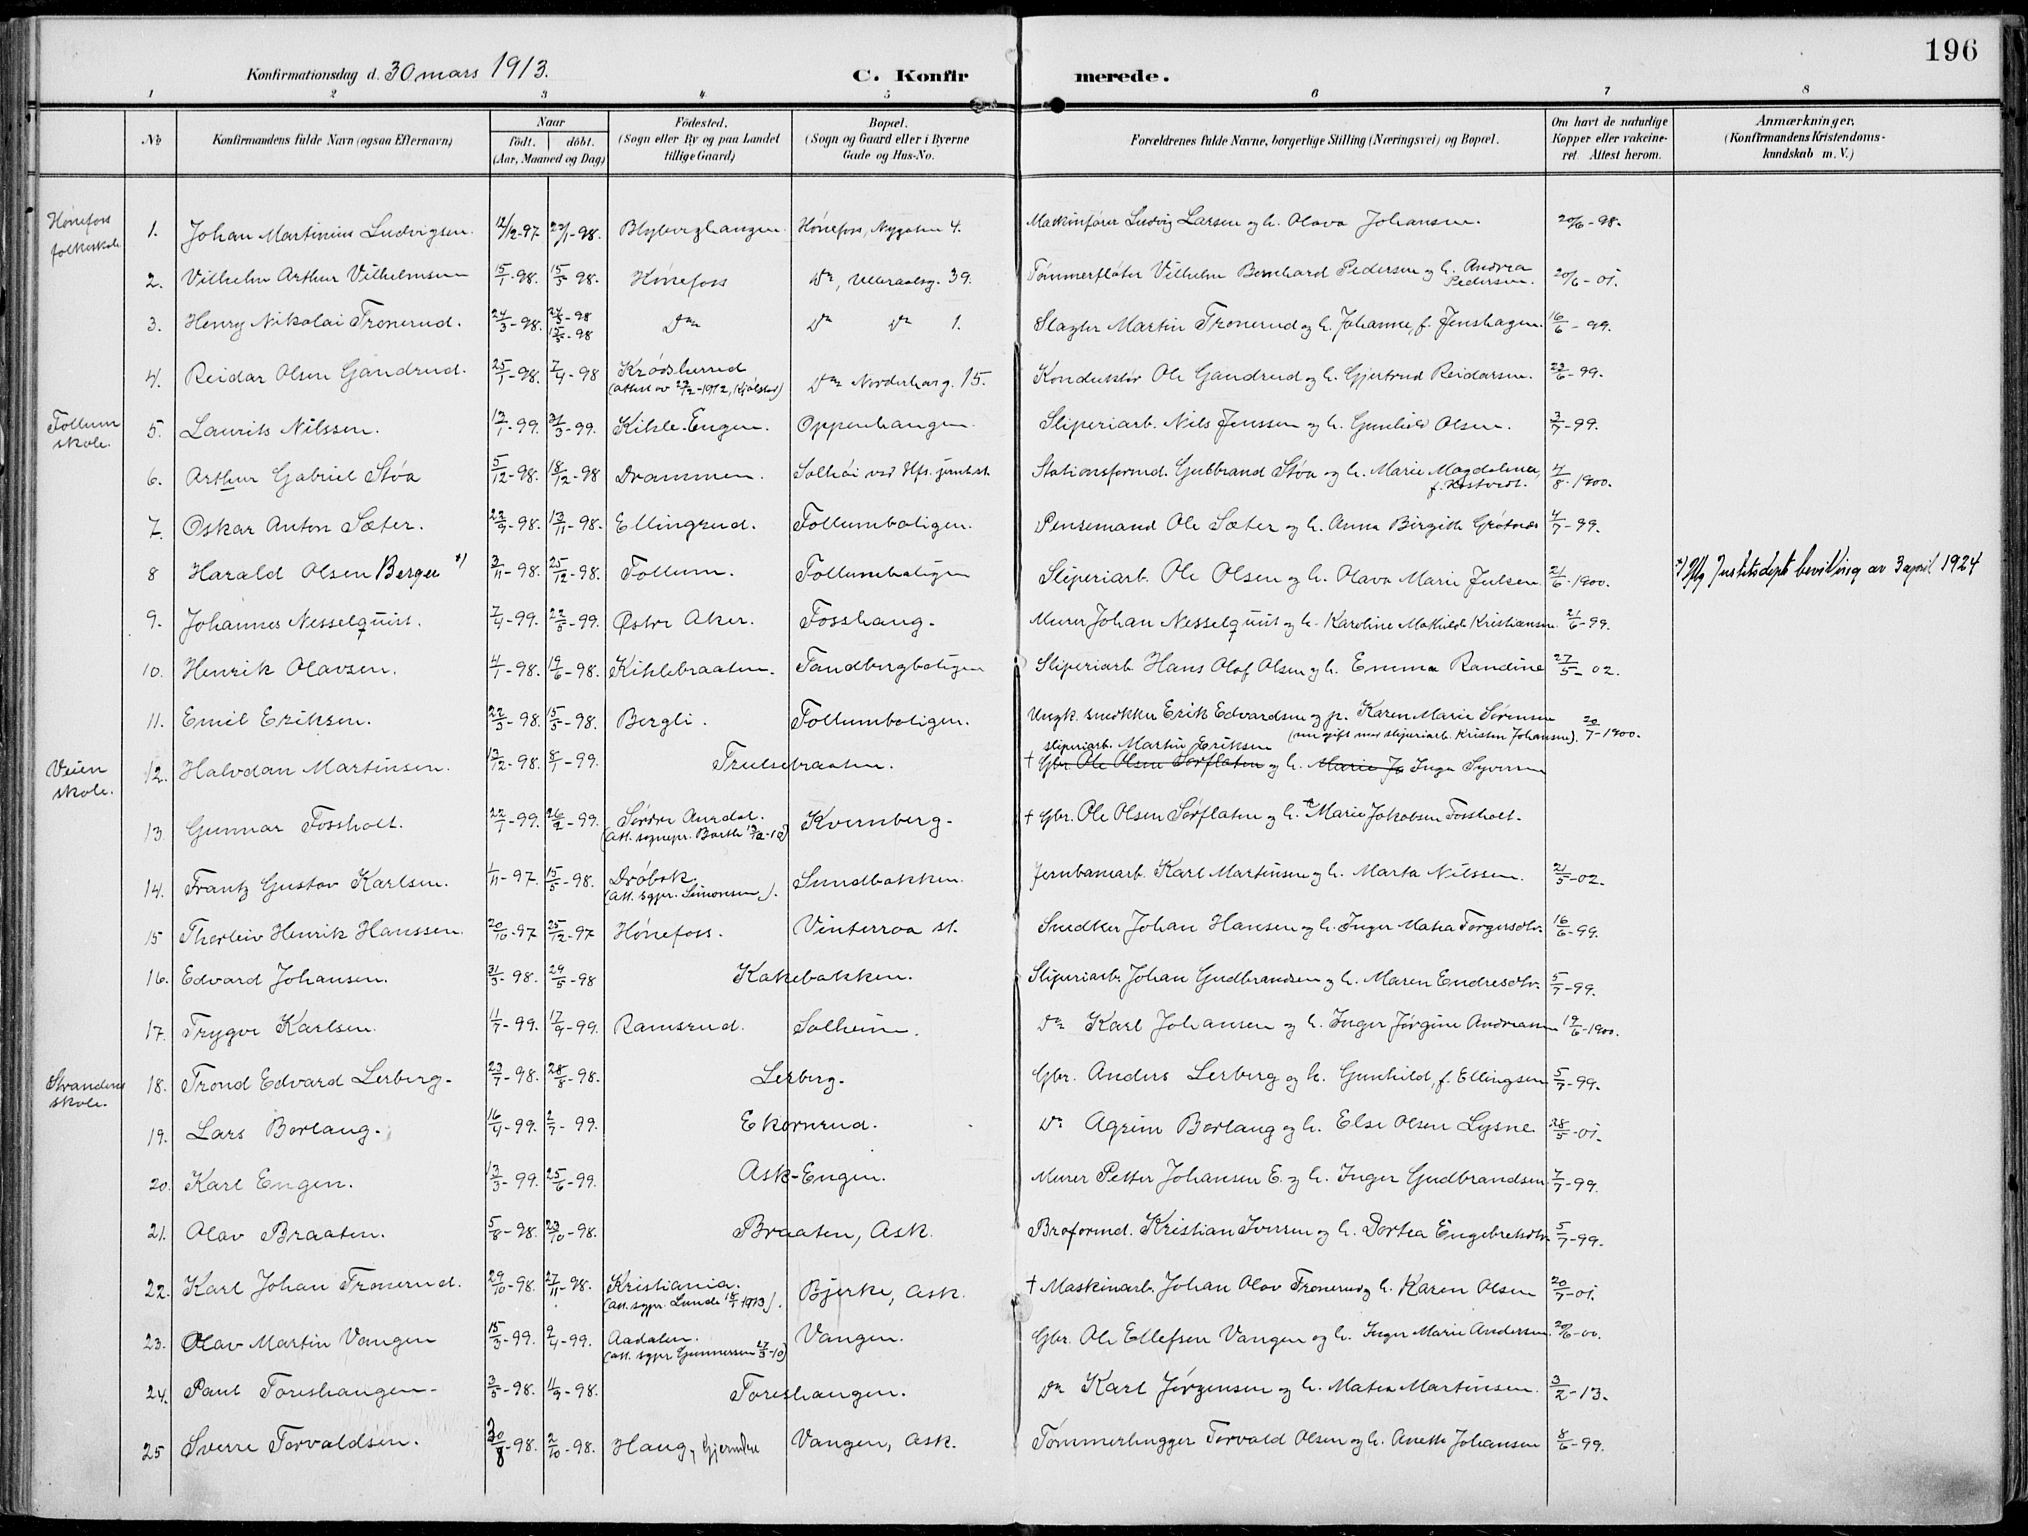 196
Konfirmationsdag d. 30 mars 1913. C. Konfirmerede.
1 2 3 4 5 6 7 8
No Konfirmandens fulde Navn (ogsaa Efternavn) Naar født. døbt. (Aar, Maaned og Dag) Fødested. (Sogn eller By og paa Landet tillige Gaard) Bopæl. (Sogn og Gaard eller i Byerne Gade og Hus-No. Forældrenes fulde Navne, borgerlige Stilling (Næringsvei) og Bopæl. Om havt de naturlige Kopper eller vakcineret. Attest herom. Anmærkninger. (Konfirmandens Kristendomskundskab m. V.)
Hønefoss folkeskole 1. Johan Martinius Ludvigsen. 12/12-97. 23/1-98. Hønefoss, Nygaten 4. Maskinfører Ludvig Larsen og h. Olava Johansen. 20/6-98.
2. Vilhelm Arthur Vilhelmsen 15/1-98. 15/5-98. Hønefoss Do, Ulleraalsg. 39. Tømmerfløter Vilhelm Bernhard Pedersen og h. Andrea Pedersen. 20/6-01.
3. Henry Nikolai Tronerud. 24/3-98. 15/5-98 Do Do Do 1. Slagter Martin Tronerud og h. Johanne, f. Jenshagen. 16/6-99.
4. Reidar Olsen Gandrud. 25/1-98. 7/4-98 Krødsherred (attest av 27/2-1912, Kjølstad) Do Norderhovsg. 15. Konduktør Ole Gandrud og h. Gjertrud Reidarsen. 23/6-99.
Follum skole. 5. Laurits Nilssen. 13/1-99. 31/3-99. Kihle-Engen. Oppenhangen. Sliperiarb. Nils Jenssen og h. Gunhild Olsen. 3/7-99.
6. Arthur Gabriel Støa 5/12-98. 18/12-98 Drammen. Solhøi ved Hfs. jernb.st. Stationsformd. Gulbrand Støa og h. Marie Magdalena, 4/8-1900.
7. Oskar Anton Sæter. 22/9-98. 13/11-98. Ellingrud. Follumboligen. Pensemand Ole Sæter og h. Anna Birgitte Grøtnes 4/7-99.
8 Harald Olsen Berger *) 3/11-98. 25/12-98. Follum. Follumboligen Sliperiarb. Ole Olsen og h. Olava Marie Julsen 21/6-1900. *) Ifølg Justitsdepts bevilling av 3 april 1924
9. Johannes Nesselquist. 7/4-99. 22/5-99. Østre Aker. Fosshaug. Murer Johan Nesselquist og h. Karoline Mathilde Kristiansen 21/6-99.
10. Henrik Olavsen. 4/1-98. 19/6-98. Kihlebraaten. Tandbergboligen Sliperiarb. Hans Olaf Olsen og h. Emma Randine 27/5-02.
11. Emil Eriksen. 22/3-98. 15/5-98. Bergli. Follumboligen. Ungk. snekker Erik Edvardsen og p. Karen Marie Sørensen (nu gift med sliperiarb. Kristen Johansen). 20/7-1900.
Veien skole. 12. Halvdan Martinsen. 13/12-98. 8/1-99. Trulsebraaten. sliperiarb. Martin Eriksen
† Gbr. Ole Olsen Sørflaten og h. Marie Ja Inga Syversen
13. Gunnar Fossholt. 22/1-99. 26/2-99. Søndre Aurdal. (att. sognepr. Barth Kvernberg. † Gbr. Ole Olsen Sørflaten og h. Marie Jakobsen Fossholt.
14. Frantz Gustav Karlsen. 1/11-97. 15/5-98. Drøbak. (att. sgpr. Simonsen). Sundbakken. Jernbanearb. Karl Martinsen og h. Marta Nilssen. 21/5-02.
15 Thorleiv Henrik Hanssen. 20/10-97 25/12-97 Hønefoss. Vinterroa st. Snedker Johan Hansen og h. Inger Matea Torgersdtr. 16/6-99.
16. Edvard Johansen. 31/3-98. 29/5-98 Kakebakken. Sliperiarb. Johan Gudbrandsen og h. Maren Endresdtr. 5/7-99.
17. Trygve Karlsen. 11/7-99. 17/9-99. Ramsrud. Solheim. Do Karl Johansen og h. Inger Jørgine Andreasen 19/6-1900.
Strandens skole. 18. Trond Edvard Lerberg. 23/7-98. 28/8-98. Lerberg. Gbr. Anders Lerberg og h. Gunhild, f. Ellingsen 5/7-99.
19. Lars Borlaug. 16/4-99. 2/7-99. Ekornrud. Do Agrim Borlaug og h. Else Olsen Lysne. 28/5-01.
20. Karl Engen. 13/3-99. 25/6-99. Ask-Engen. Murer Petter Johansen E. og h. Inger Gudbrandsen. 7/7-99.
21. Olav Braaten. 5/8-98. 23/10-98. Braaten, Ask. Broformd. Kristian Iversen og h. Dortea Engebretsdtr. 5/7-99.
22. Karl Johan Tronerud. 29/10-98. 27/11-98. Kristiania. (att. sgpr. Lunde 18/1 1913). Bjerke, Ask. † Maskinarb. Johan Olav Tronerud og h. Karen Olsen 20/7-01.
23. Olav Martin Vangen 15/3-99. 9/4-99. Aadalen. (att. sgpr Gunnersen 27/3-10) Vangen. Gbr. Ole Ellefsen Vangen og h. Inger Marie Andersen. 20/6-00.
24. Paul Toreshaugen. 3/5-98. 11/9-98. Toreshaugen. Do Karl Jørgensen og h. Matea Martinsen. 3/2-13.
25 Sverre Torvaldsen. 30/8-98. 2/10-98. Haug, Gjermdre Vangen, Ask. Tømmerhugger Torvald Olsen og h. Anette Johansen 8/6-99.